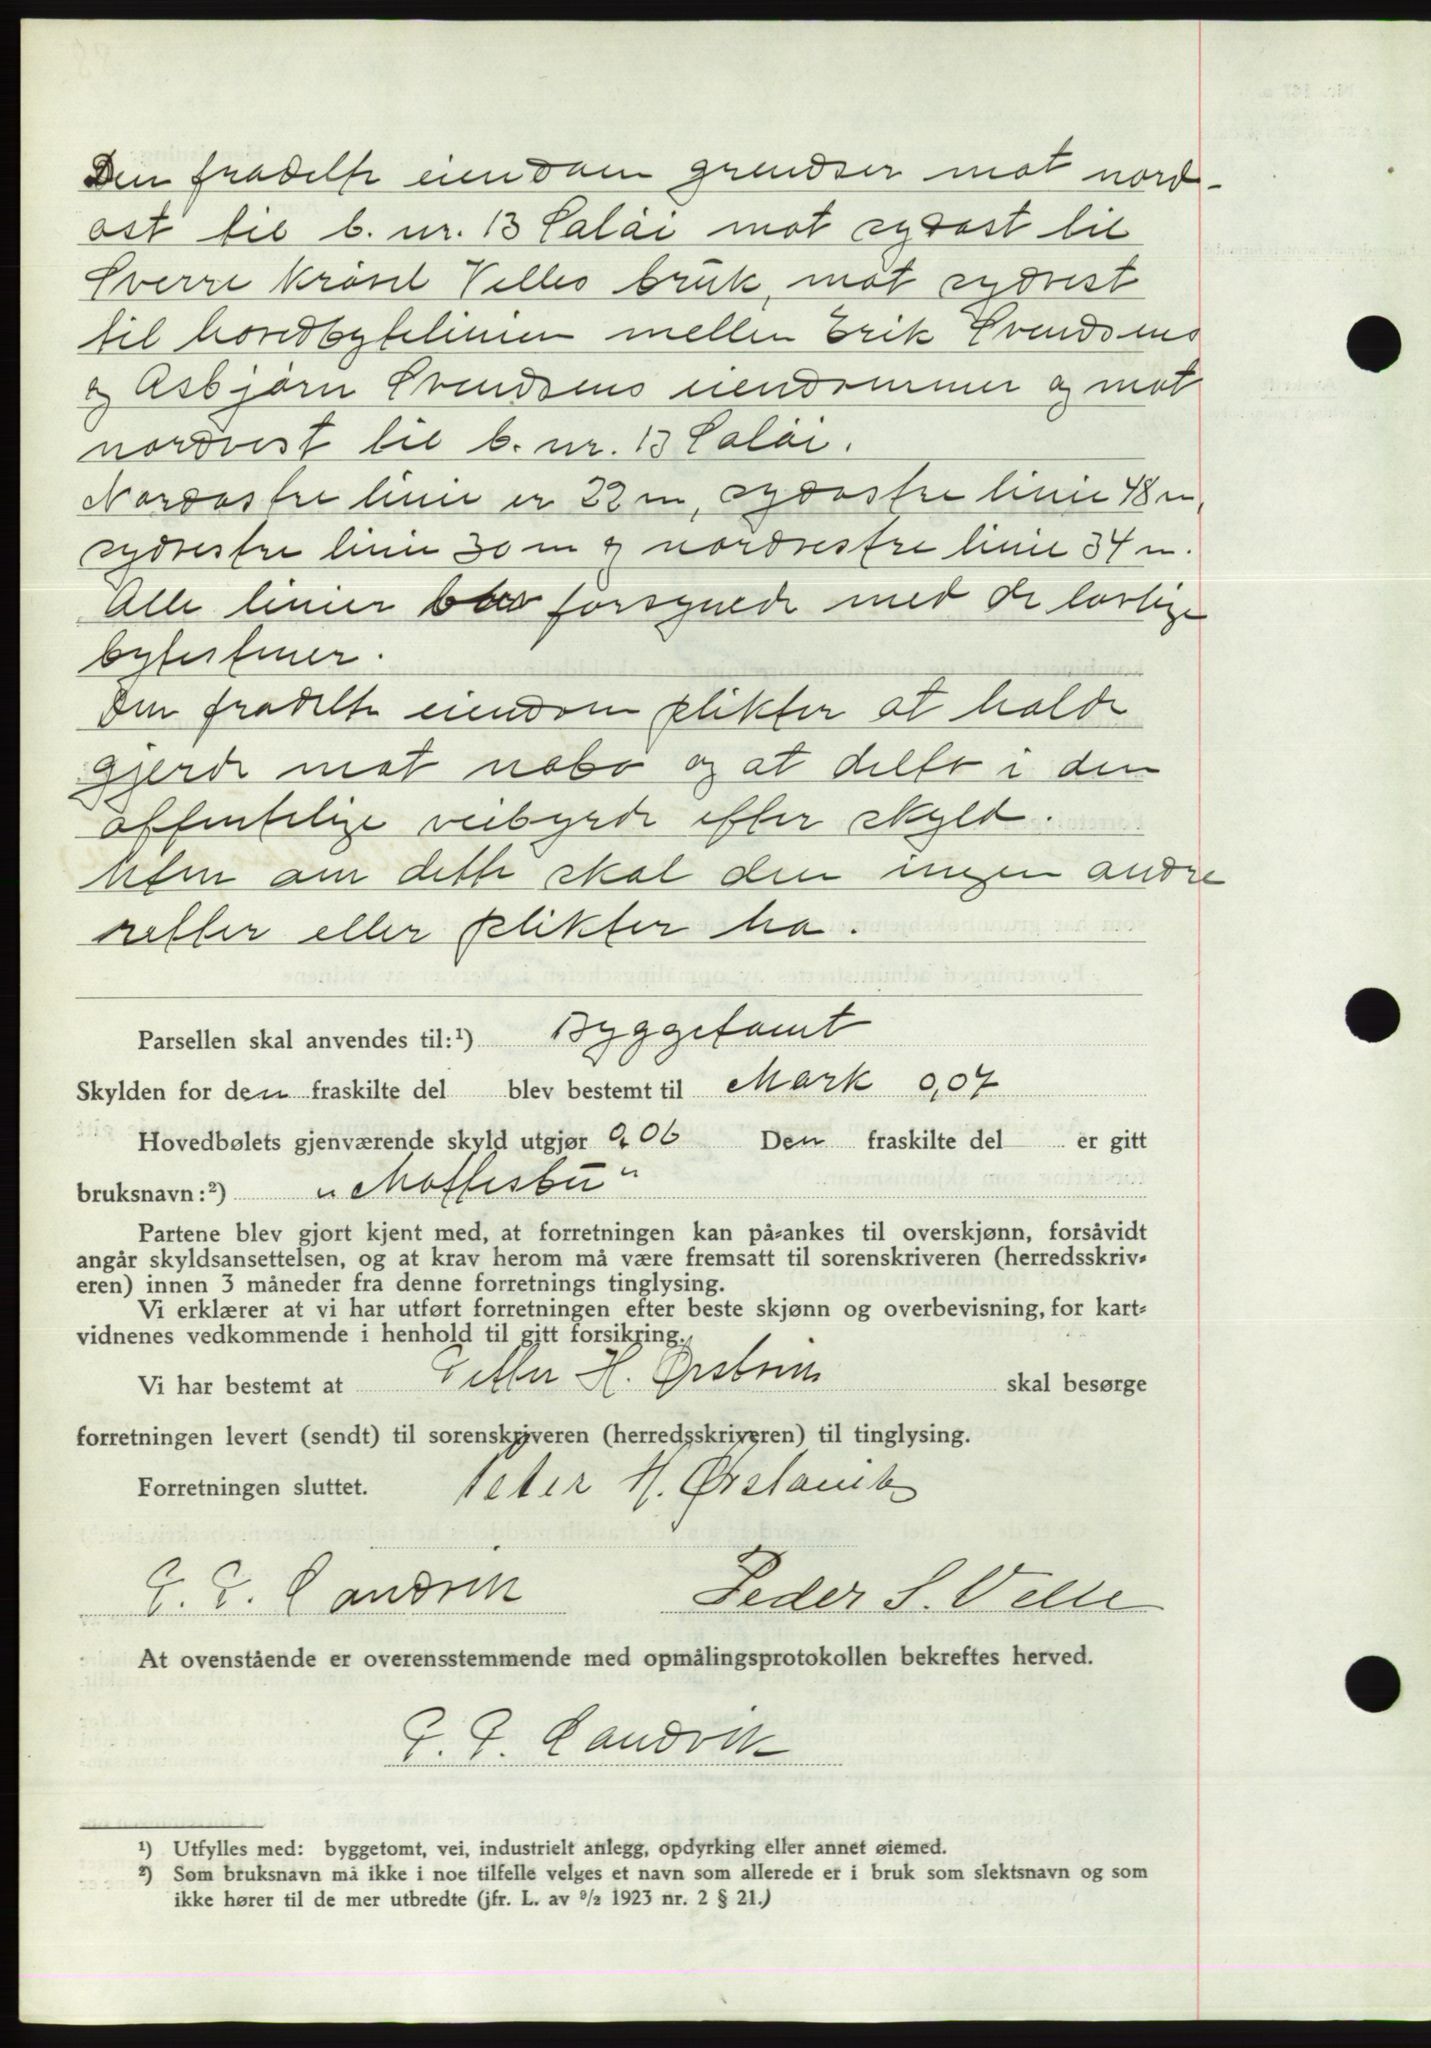 Den fradelte eiendom grendser mot nord-
ost til b. nr. 13 Solåi mot sydost til
Sverre Krosvl Velles bruk, mot sydvest
til hovedbytelinien mellem Erik Svendsens
og Asbjørn Svendsens eiendommer og mot
nordvest til b. nr. 13 Solåi.
Nordostre linie er 22 m, sydostre linie 48 m,
sydvestre linie 30 m og nordvestre linie 34 m.
Alle linier blev forsynede med de lovlige
bytestener.
Den fradelte eiendom plikter at holde
gjerde mot nabo og at delta i den
offentlige veibyrde efter skyld.
Uten om dette skal den ingen andre
retter eller plikter ha.
Parsellen skal anvendes til:¹) Byggetomt
Skylden for den fraskilte del blev bestemt til Mark 0,07
Hovedbølets gjenværende skyld utgjør 0,06 Den fraskilte del er gitt
bruksnavn:²) "Mottesbu"
Partene blev gjort kjent med, at forretningen kan på-ankes til overskjønn, forsåvidt
angår skyldsansettelsen, og at krav herom må være fremsatt til sorenskriveren (herredsskriv-
eren) innen 3 måneder fra denne forretnings tinglysing.
Vi erklærer at vi har utført forretningen efter beste skjønn og overbevisning, for kart-
vidnenes vedkommende i henhold til gitt forsikring.
Vi har bestemt at Petter H. Ørstavik skal besørge
forretningen levert (sendt) til sorenskriveren (herredsskriveren) til tinglysing.
Forretningen sluttet. Peter H. Ørstavik
P. P. Landvik Peder S. Velle
At ovenstående er overensstemmende med opmålingsprotokollen bekreftes herved.
P. P. Landvik
¹) Utfylles med: byggetomt, vei, industrielt anlegg, opdyrking eller annet øiemed.
²) Som bruksnavn må ikke i noe tilfelle velges et navn som allerede er i bruk som slektsnavn og som
ikke hører til de mer utbredte (jfr. L. av ⁹/₂ 1923 nr. 2 § 21.)